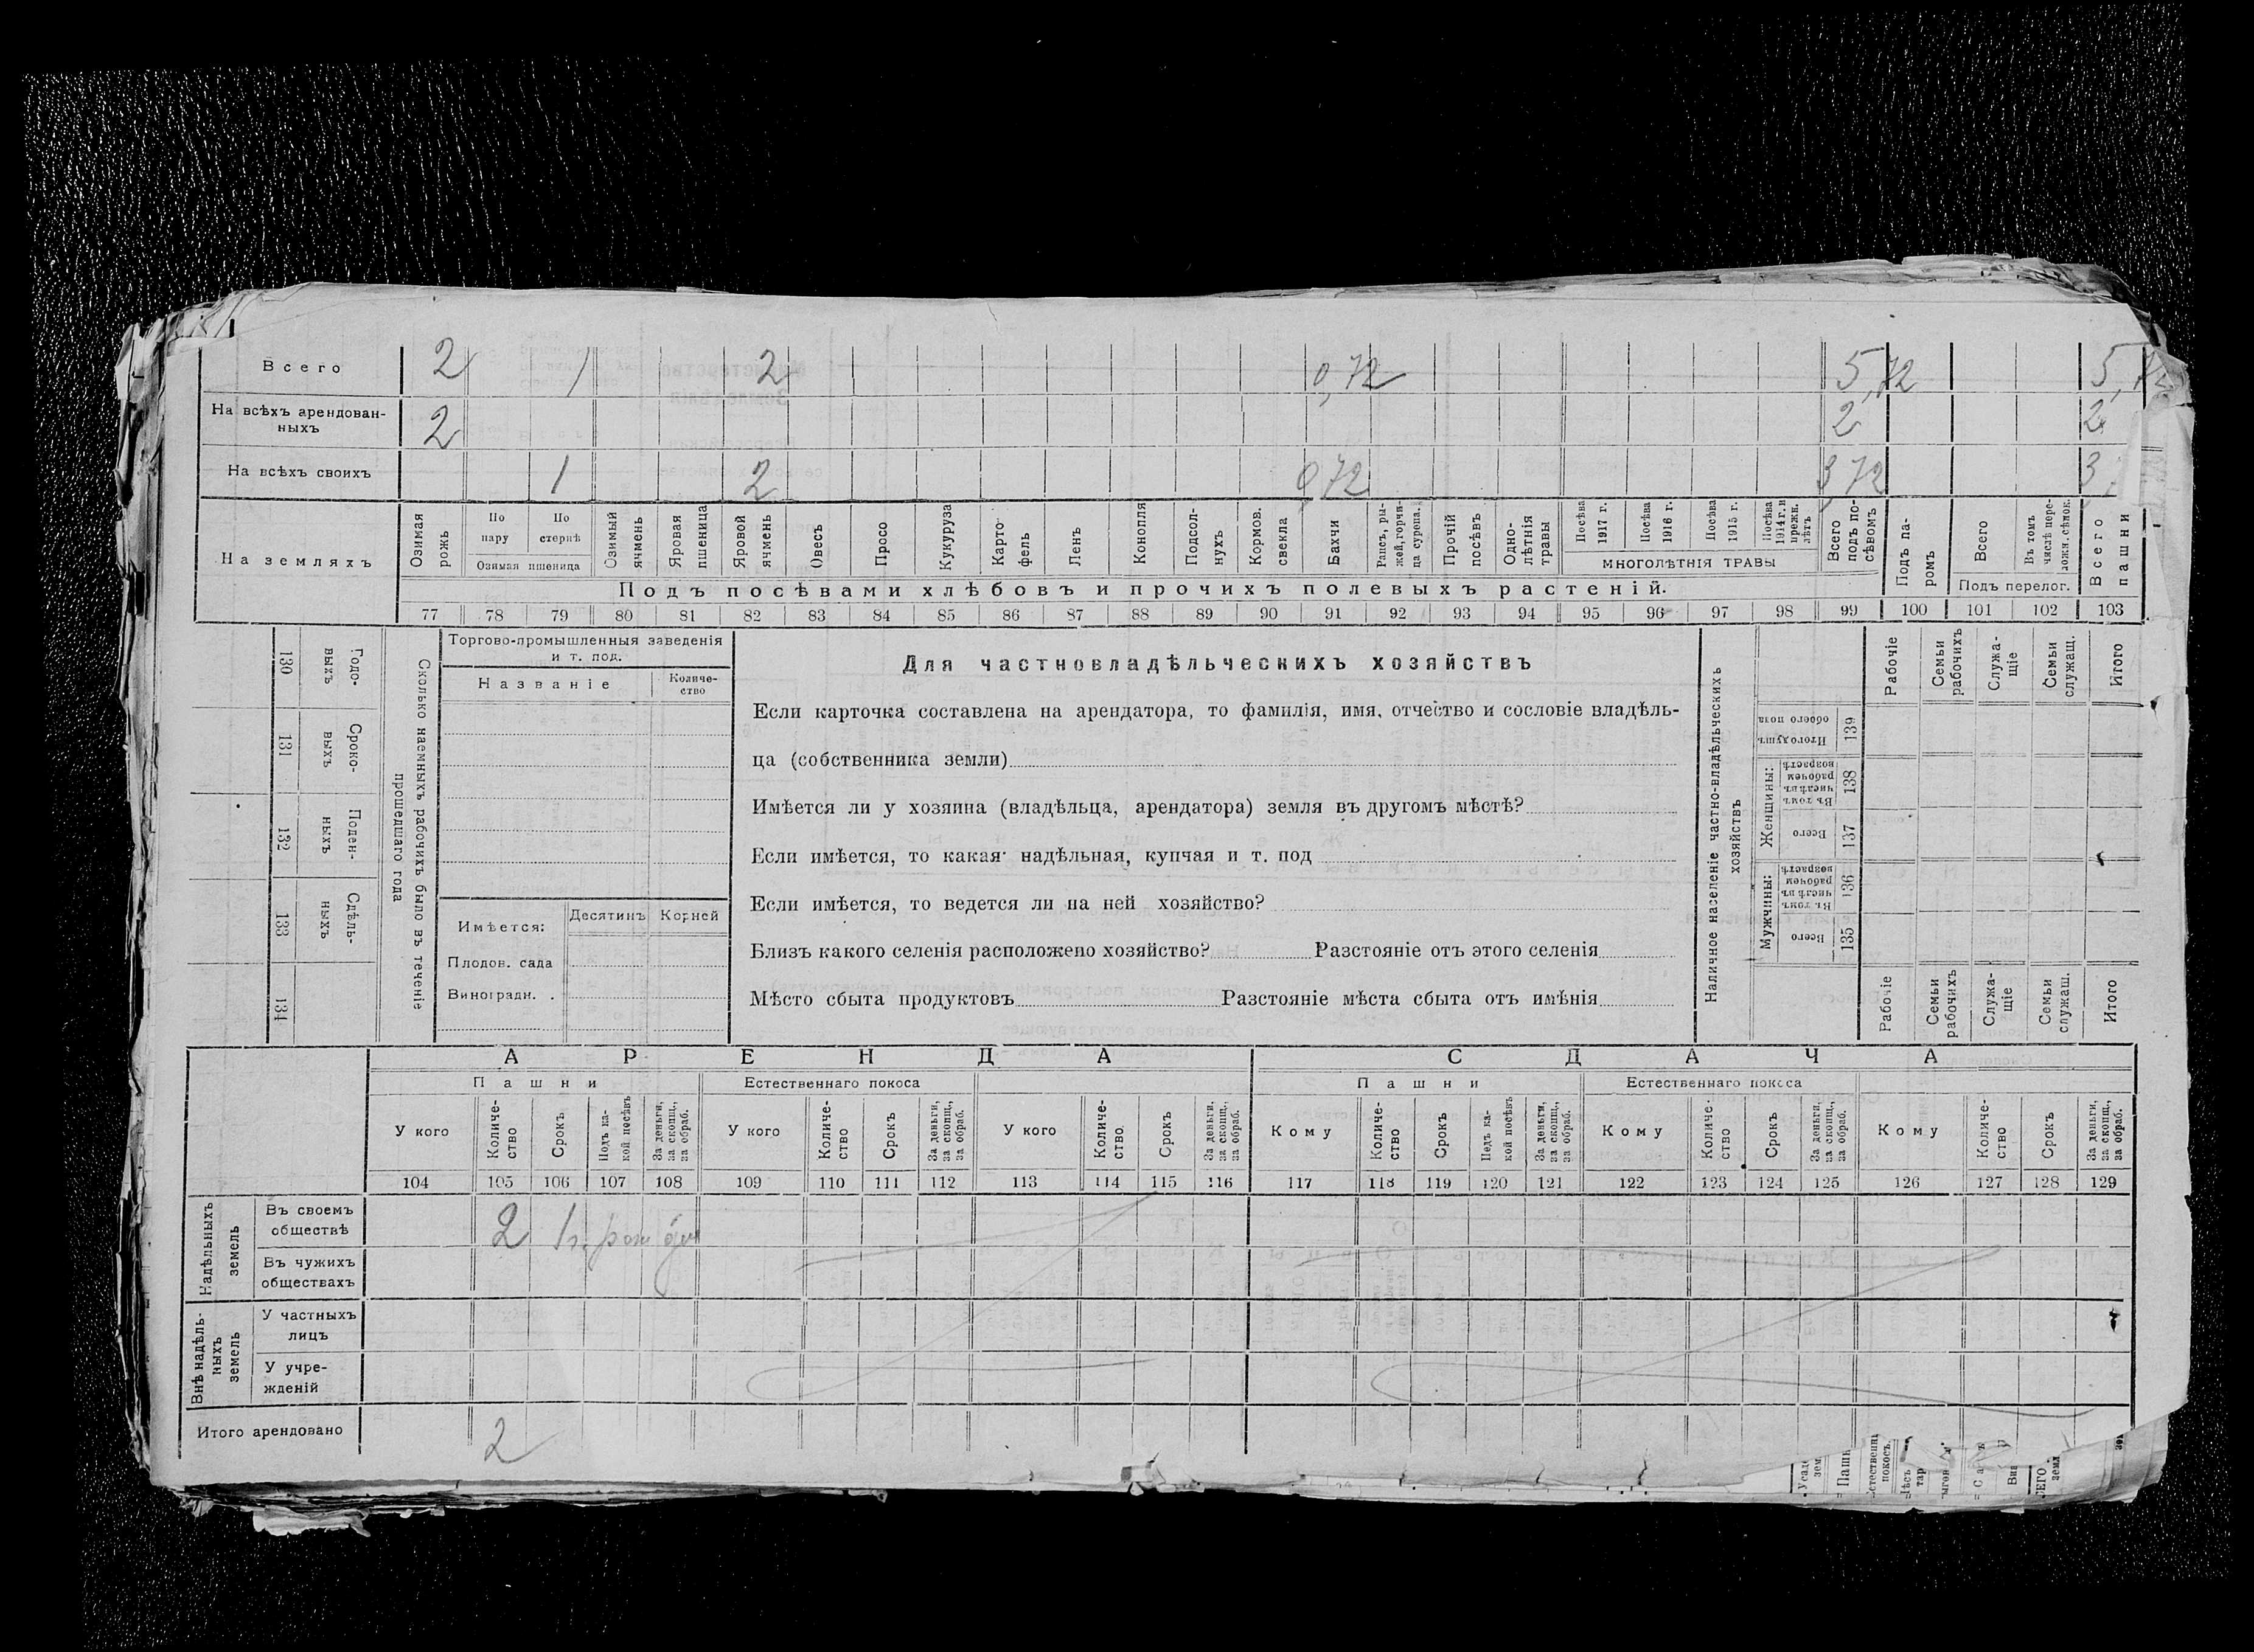 Всего 2 1 2 0,72 5,72 5,72
На всѣхъ арендован-
ныхъ 2 2 2
На всѣхъ своихъ 1 2 0,72 3,72 3,
На земляхъ
Озимая рожь
По пару
По стернѣ
Озимая пшеница
Озимый ячмень
Яровая пшеница
Яровой ячмень
Овесъ
Просо
Кукуруза
Карто-
фель
Ленъ
Конопля
Подсол-
нухъ
Кормов. свекла
Бахчи
Рапсъ, ры-
жей, горчи-
ца сурепа.
Прочій посѣвъ
Одно-
лѣтнія травы
Посѣва 1917 г.
Посѣва 1916 г.
Посѣва 1915 г.
Посѣва 1914 г. и прежн. лѣтъ
МНОГОЛѢТНІЯ ТРАВЫ
Всего подъ по-
сѣвомъ
Подъ па-
ромъ
Всего
Въ томъ числѣ пере-
ложн. сѣнок.
Подъ перелог.
Всего пашни
Подъ посѣвами хлѣбовъ и прочихъ полевыхъ растеній.
77 78 79 80 81 82 83 84 85 86 87 88 89 90 91 92 93 94 95 96 97 98 99 100 101 102 103
Сколько наемныхъ рабочихъ было въ теченіе
прошедшаго года
Годо-
выхъ
130
Сроко-
выхъ
131
Поден-
ныхъ
132
Сдѣль-
ныхъ
133
134
Торгово-промышленныя заведенія
и т. под.
Названіе
Количе-
ство
Имѣется:
Десятинъ Корней
Плодов. сада
Виноградн. .
Для частновладѣльческихъ хозяйствъ
Если карточка составлена на арендатора, то фамилія, имя, отчество и сословіе владѣль-
ца (собственника земли)
Имѣется ли у хозяина (владѣльца, арендатора) земля въ другомъ мѣстѣ?
Если имѣется, то какая: надѣльная, купчая и т. под
Если имѣется, то ведется ли на ней хозяйство?
Близъ какого селенія расположено хозяйство? Разстояніе отъ этого селенія
Мѣсто сбыта продуктовъ Разстояніе мѣста сбыта отъ имѣнія
Наличное населеніе частно-владѣльческихъ
хозяйствъ
Рабочіе
Семьи рабочихъ
Служа-
щіе
Семьи служащ.
Итого
Итого душъ обоего пола 139
Женщины:
Въ томъ числѣ въ рабочем возрастѣ 138
Всего 137
Мужчины:
Въ томъ числѣ въ рабочем возрастѣ 136
Всего 135
Рабочіе
Семьи рабочихъ
Служа-
щіе
Семьи служащ.
Итого
АРЕНДА СДАЧА
Пашни Естественнаго покоса Пашни Естественнаго покоса
У кого
Количе-
ство
Срокъ
Подъ ка-
кой посѣвъ
За деньги, за скопщ., за обраб.
У кого
Количе-
ство
Срокъ
За деньги, за скопщ., за обраб.
У кого
Количе-
ство
Срокъ
За деньги, за скопщ., за обраб.
Кому
Количе-
ство
Срокъ
Подъ ка-
кой посѣвъ
За деньги, за скопщ., за обраб.
Кому
Количе-
ство
Срокъ
За деньги, за скопщ., за обраб.
Кому
Количе-
ство
Срокъ
За деньги, за скопщ., за обраб.
104 105 106 107 108 109 110 111 112 113 114 115 116 117 118 119 120 121 122 123 124 125 126 127 128 129
Надѣльныхъ земель
Въ своемъ
обществѣ 2 1 г.
Въ чужихъ
обществахъ
Внѣ надѣль-
ныхъ
земель
У частныхъ
лицъ
У учре-
жденій
Итого арендовано 2
Пашн
покосъ.